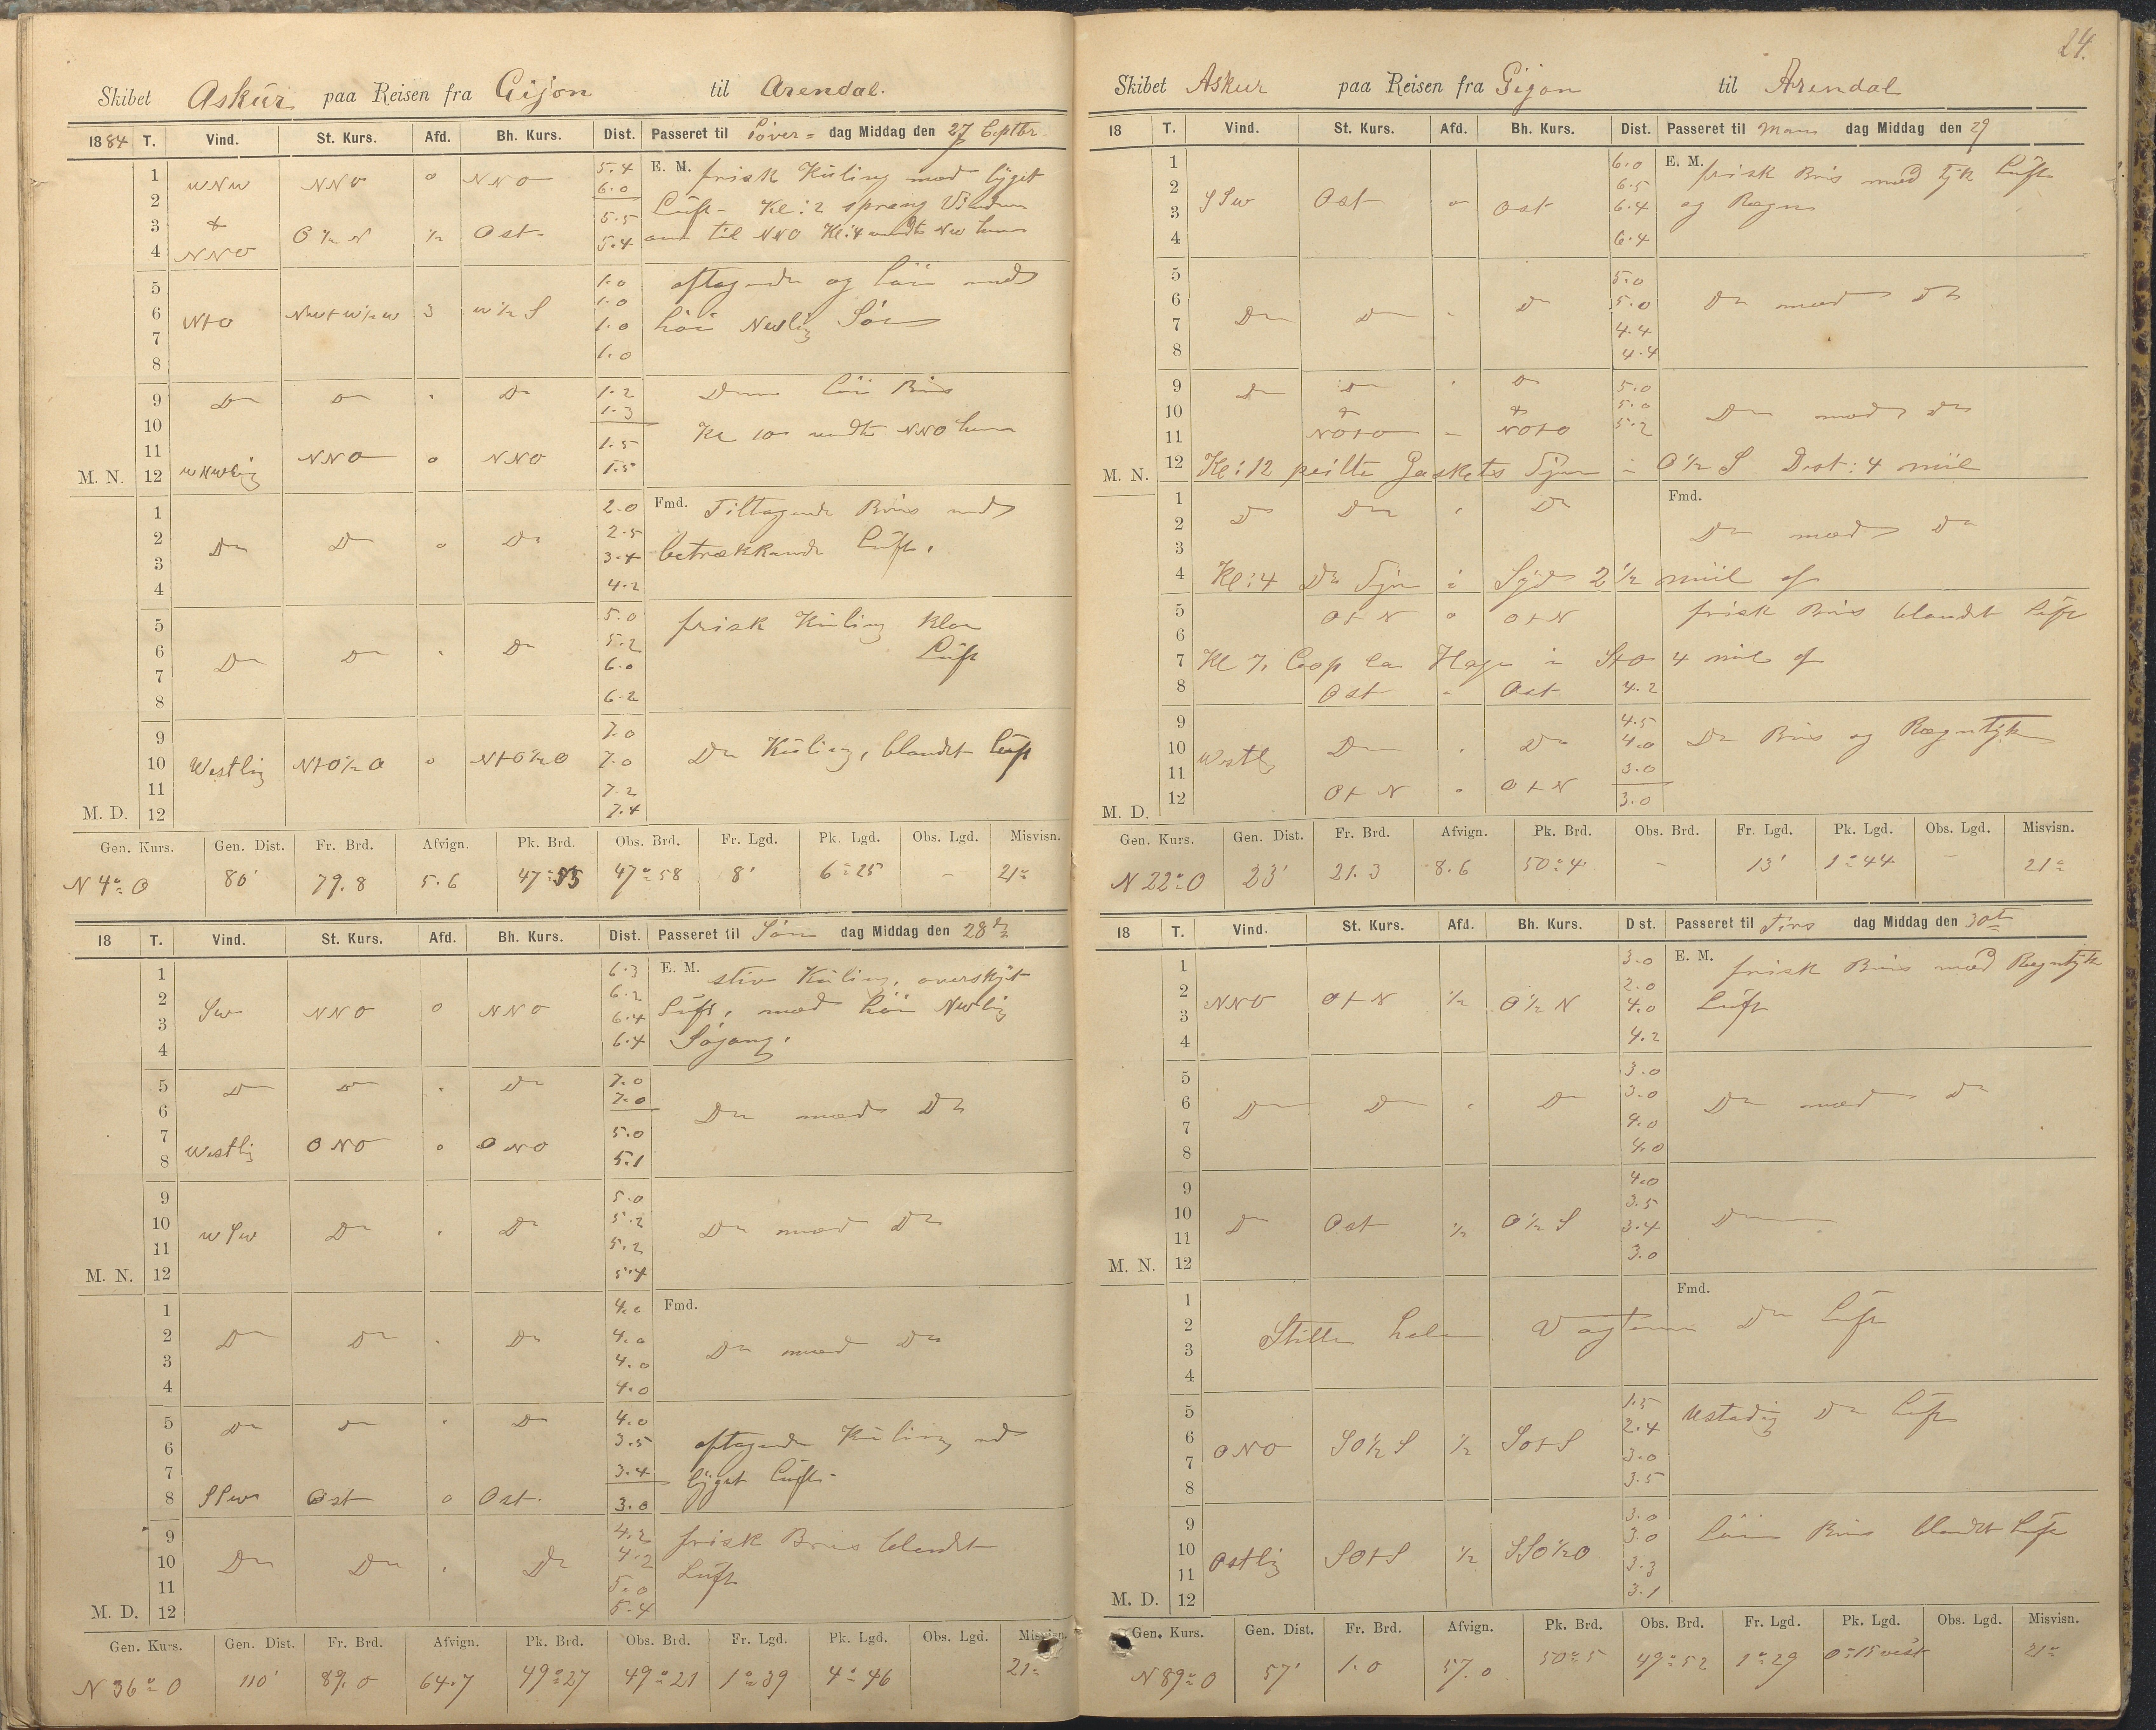 24.
Skibet Askur paa Reisen fra Gijon til Arendal.
1884 T. Vind. St. Kurs. Afd. Bh. Kurs. Dist. Passeret til Löver= dag Middag den 27 Septbr
1 WNW NNO o NNO 5.4 E. M. frisk Küling med
2 6.0 Lüft - Kl: 2 sprang Vinden
3 & O ½ N ½ Ost. 5.5 til NNO Kl: 4
4 NNO 5.4
5 1.0 aftagende og med
6 NtO 3 W ½ S 1.0
7 1.0 höi NWlig Sö
8 1.0
9 Do Do " Do 1.2 Bris
10 1.3 Kl 10 NNO
11 NNO o NNO 1.5
M. N. 12 WNWlig 1.5
1 2.0 Fmd. Tiltagende Bris med
2 Do Do o Do 2.5
3 3.4 betrækkende Lüft.
4 4.2
5 5.0 frisk Küling klar
6 Do Do " Do 5.2 Lüft
7 6.0
8 6.2
9 7.0
10 Westlig NtO½O o NtO½O 7.0 Do Küling, blandet Lüft
11 7.2
M. D. 12 7.4
Gen. Kurs. Gen. Dist. Fr. Brd. Afvign. Pk. Brd. Obs. Brd. Fr. Lgd. Pk. Lgd. Obs. Lgd. Misvisn.
N 4° O 80' 79.8 5.6 47° 55 47° 58 8' 6° 25 - 21°
18 T. Vind. St. Kurs. Afd. Bh. Kurs. Dist. Passeret til Sön dag Middag den 28de
1 6.3 E. M. stiv Küling, overskyet
2 SW NNO o NNO 6.2 Lüft, med höi NWlig
3 6.4 Sögang.
4 6.4
5 Do Do " Do 7.0
6 7.0 Do med Do
7 5.0
8 Westlig ONO o ONO 5.1
9 5.0
10 WSW Do " Do 5.2 Do med Do
11 5.2
M. N. 12 5.4
1 4.0 Fmd.
2 Do Do " Do 4.0 Do med Do
3 4.0
4 4.0
5 Do Do " Do 4.0
6 3.5 aftagende Küling med
7 3.4 Lüft.
8 SSW Ost o Ost. 3.0
9 4.2 frisk Bris blandet
10 Do Do " Do 4.2 Lüft
11 5.0
M. D. 12 5.4
Gen. Kurs. Gen. Dist. Fr. Brd. Afvign. Pk. Brd. Obs. Brd. Fr. Lgd. Pk. Lgd. Obs. Lgd. Misvisn.
N 36° O 110' 89.0 64.7 49° 27 49° 21 1° 39 4° 46 21°
Skibet Askur paa Reisen fra Gijon til Arendal
18 T. Vind. St. Kurs. Afd. Bh. Kurs. Dist. Passeret til Man dag Middag den 29
1 6.0 E. M. frisk Bris med tyk Lüft
2 SSW Ost o Ost 6.5 og Regn
3 6.4
4 6.4
5 5.0
6 Do Do " Do 5.0 Do med Do
7 4.4
8 4.4
9 Do Do " Do 5.0
10 & & 5.0 Do med Do
11 NOtO " NOtO 5.2
M. N. 12 Kl: 12 peilte Gaskets Fyr i O½S Dist: 4 miil
1 Do Do " Do Fmd.
2 Do med Do
3
4 Kl: 4 Do Fyr i Syd 2½ miil af
5 OtN o OtN frisk Bris blandet Lüft
6
7 Kl 7. Cap la Hage i StO 4 miil af
8 Ost " Ost 4.2
9 4.5
10 Westlig Do " Do 4.0 Do Bris og Regntyk
11 3.0
M. D. 12 OtN " OtN 3.0
Gen. Kurs. Gen. Dist. Fr. Brd. Afvign. Pk. Brd. Obs. Brd. Fr. Lgd. Pk. Lgd. Obs. Lgd. Misvisn.
N 22° O 23' 21.3 8.6 50° 4 - 13' 1° 44 - 21°
18 T. Vind. St. Kurs. Afd. Bh. Kurs. Dist. Passeret til Tirs dag Middag den 30te
1 3.0 E. M. frisk Bris med Regntyk
2 NNO OtN ½ O½N 2.0 Lüft
3 4.0
4 4.2
5 3.0
6 Do Do " Do 3.0 Do med Do
7 4.0
8 4.0
9 4.0
10 Do Ost ½ O½S 3.5 Do
11 3.4
M. N. 12 3.0
1 Fmd.
2 Stille hele Vagten Do Lüft
3
4
5 1.5 Ustadig Do Lüft
6 ONO SO½S ½ SOtS 2.4
7 3.0
8 3.5
9 3.0 Bris blandet Lüft
10 Ostlig SOtS ½ SSO½O 3.0
11 3.3
M. D. 12 3.1
Gen. Kurs. Gen. Dist. Fr. Brd. Afvign. Pk. Brd. Obs. Brd. Fr. Lgd. Pk. Lgd. Obs. Lgd. Misvisn.
N 89° O 57' 1.0 57.0 50° 5 49° 52 1° 29 0° 15 vest 21°